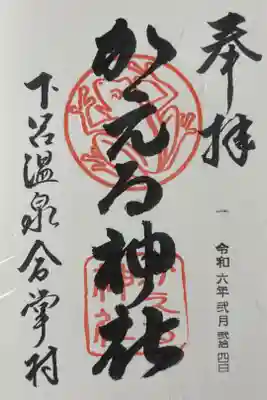 奉拝
一 令和六年弐月弐拾四日
かえる神社
下呂温泉合掌村